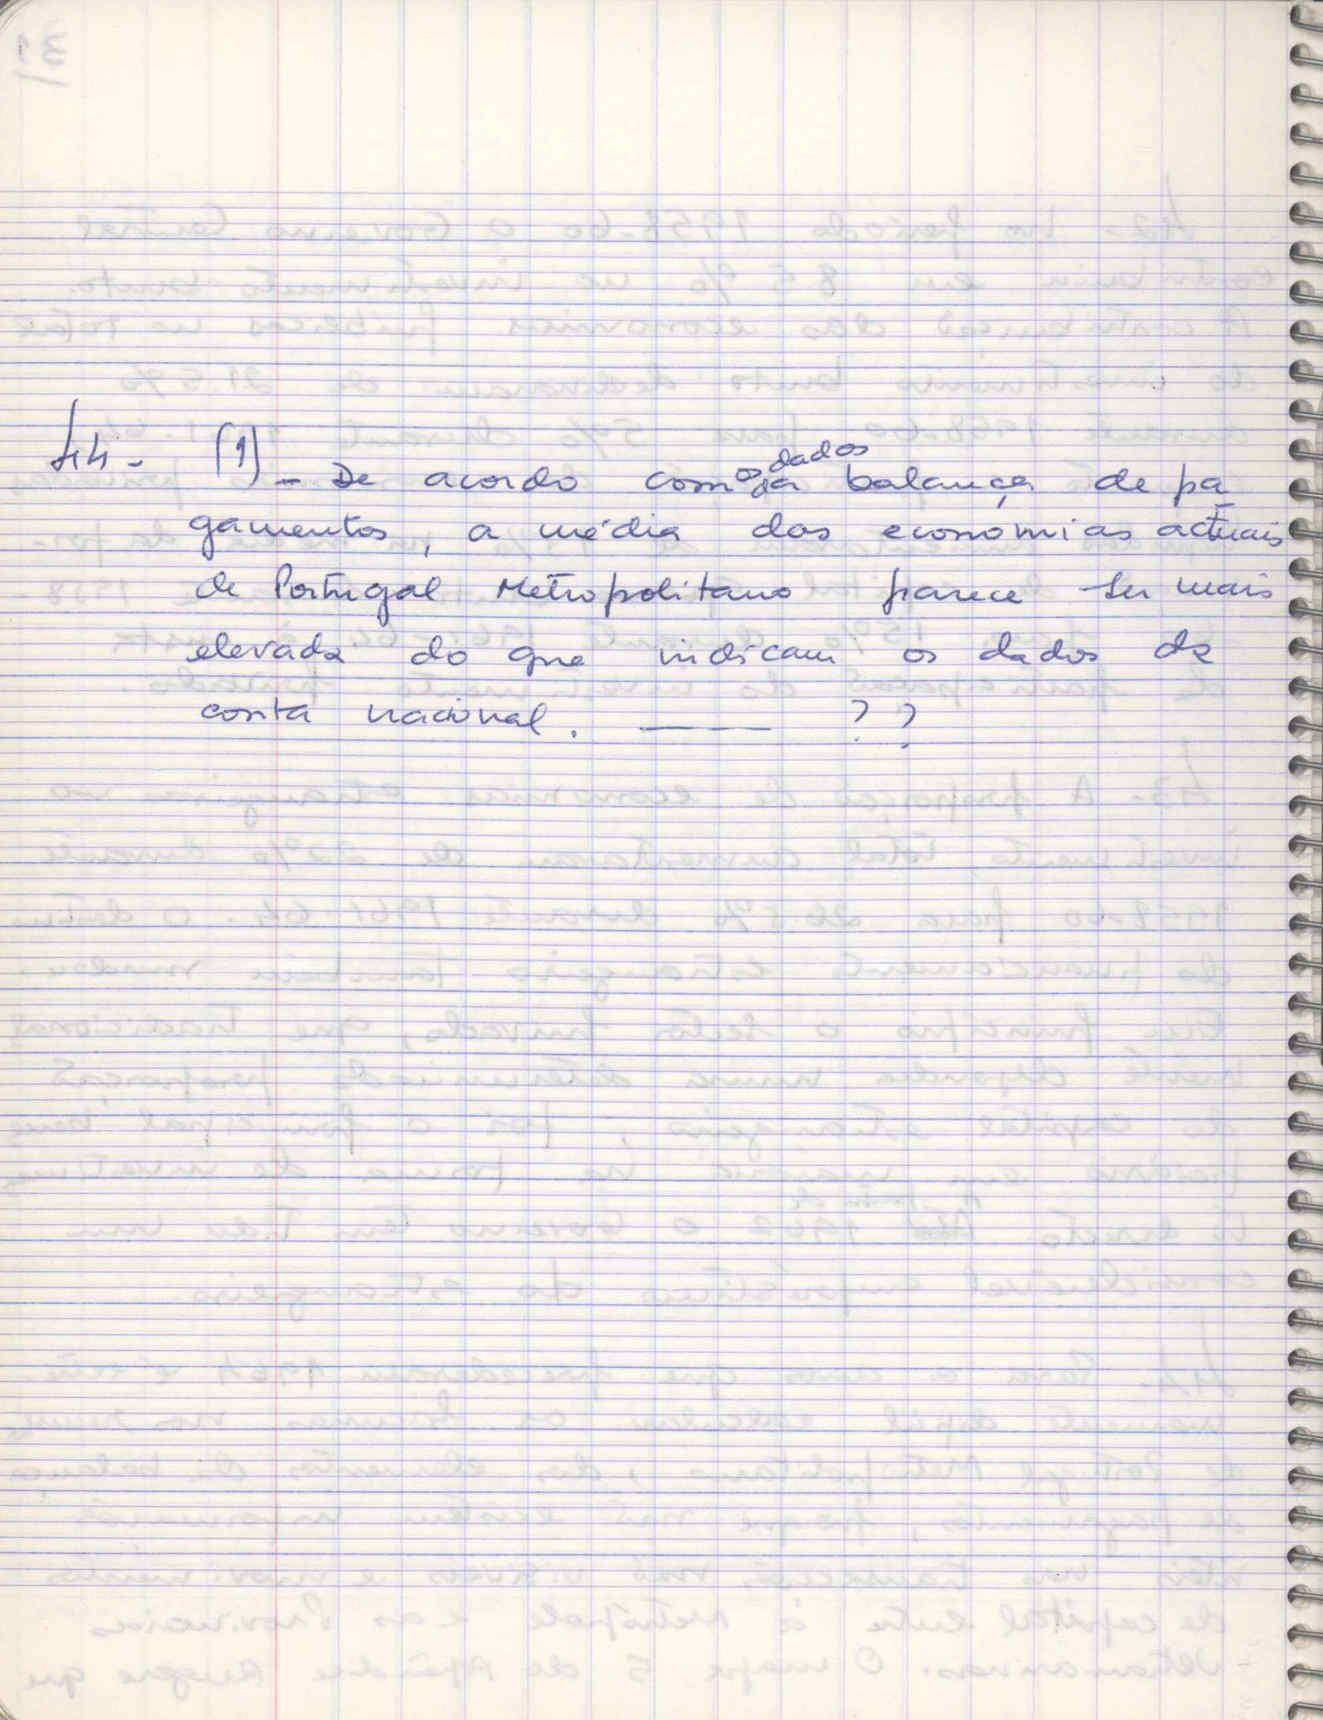 44 - (1) - De acordo com os dados da balança de pa-
gamentos, a média das economias actuais
de Portugal Metropolitano parece ser mais
elevada do que indicam os dados da
conta nacional. ——— ? ?